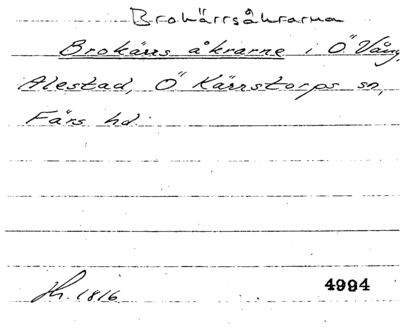 Brokärrsåkrarna
Brokärrs åkrarne i Ö Vång,
Alestad, Ö Kärrstorps sn,
Färs hd.
Hr. 1816 4994